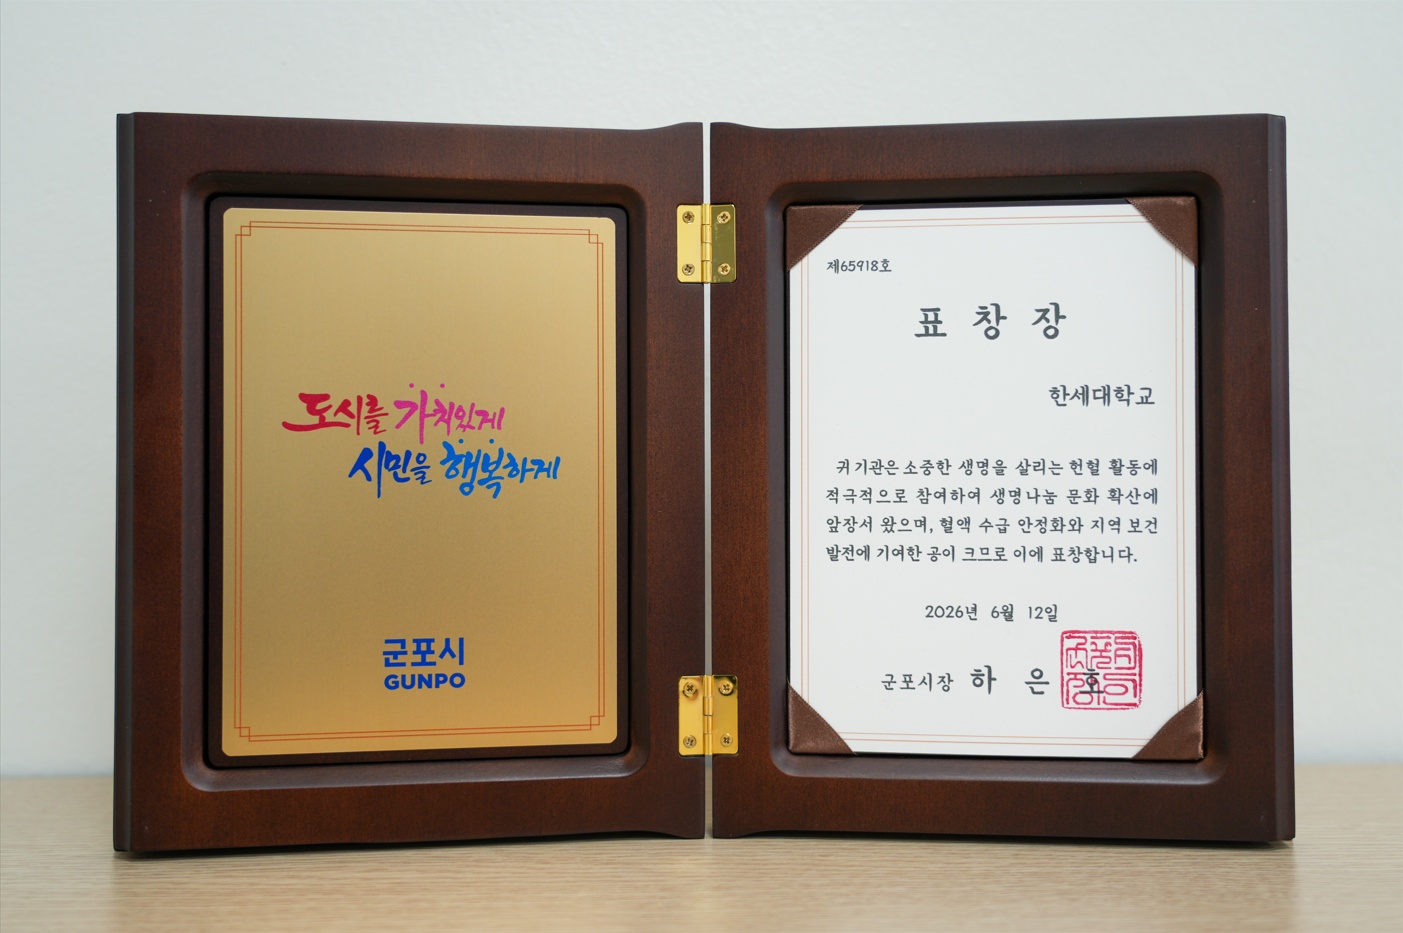 도시를 가치있게
시민을 행복하게
군포시
GUNPO
제65918호
표 창 장
한세대학교
귀 기관은 소중한 생명을 살리는 헌혈 활동에
적극적으로 참여하여 생명나눔 문화 확산에
앞장서 왔으며, 혈액 수급 안정화와 지역 보건
발전에 기여한 공이 크므로 이에 표창합니다.
2026년 6월 12일
군포시장 하 은 호